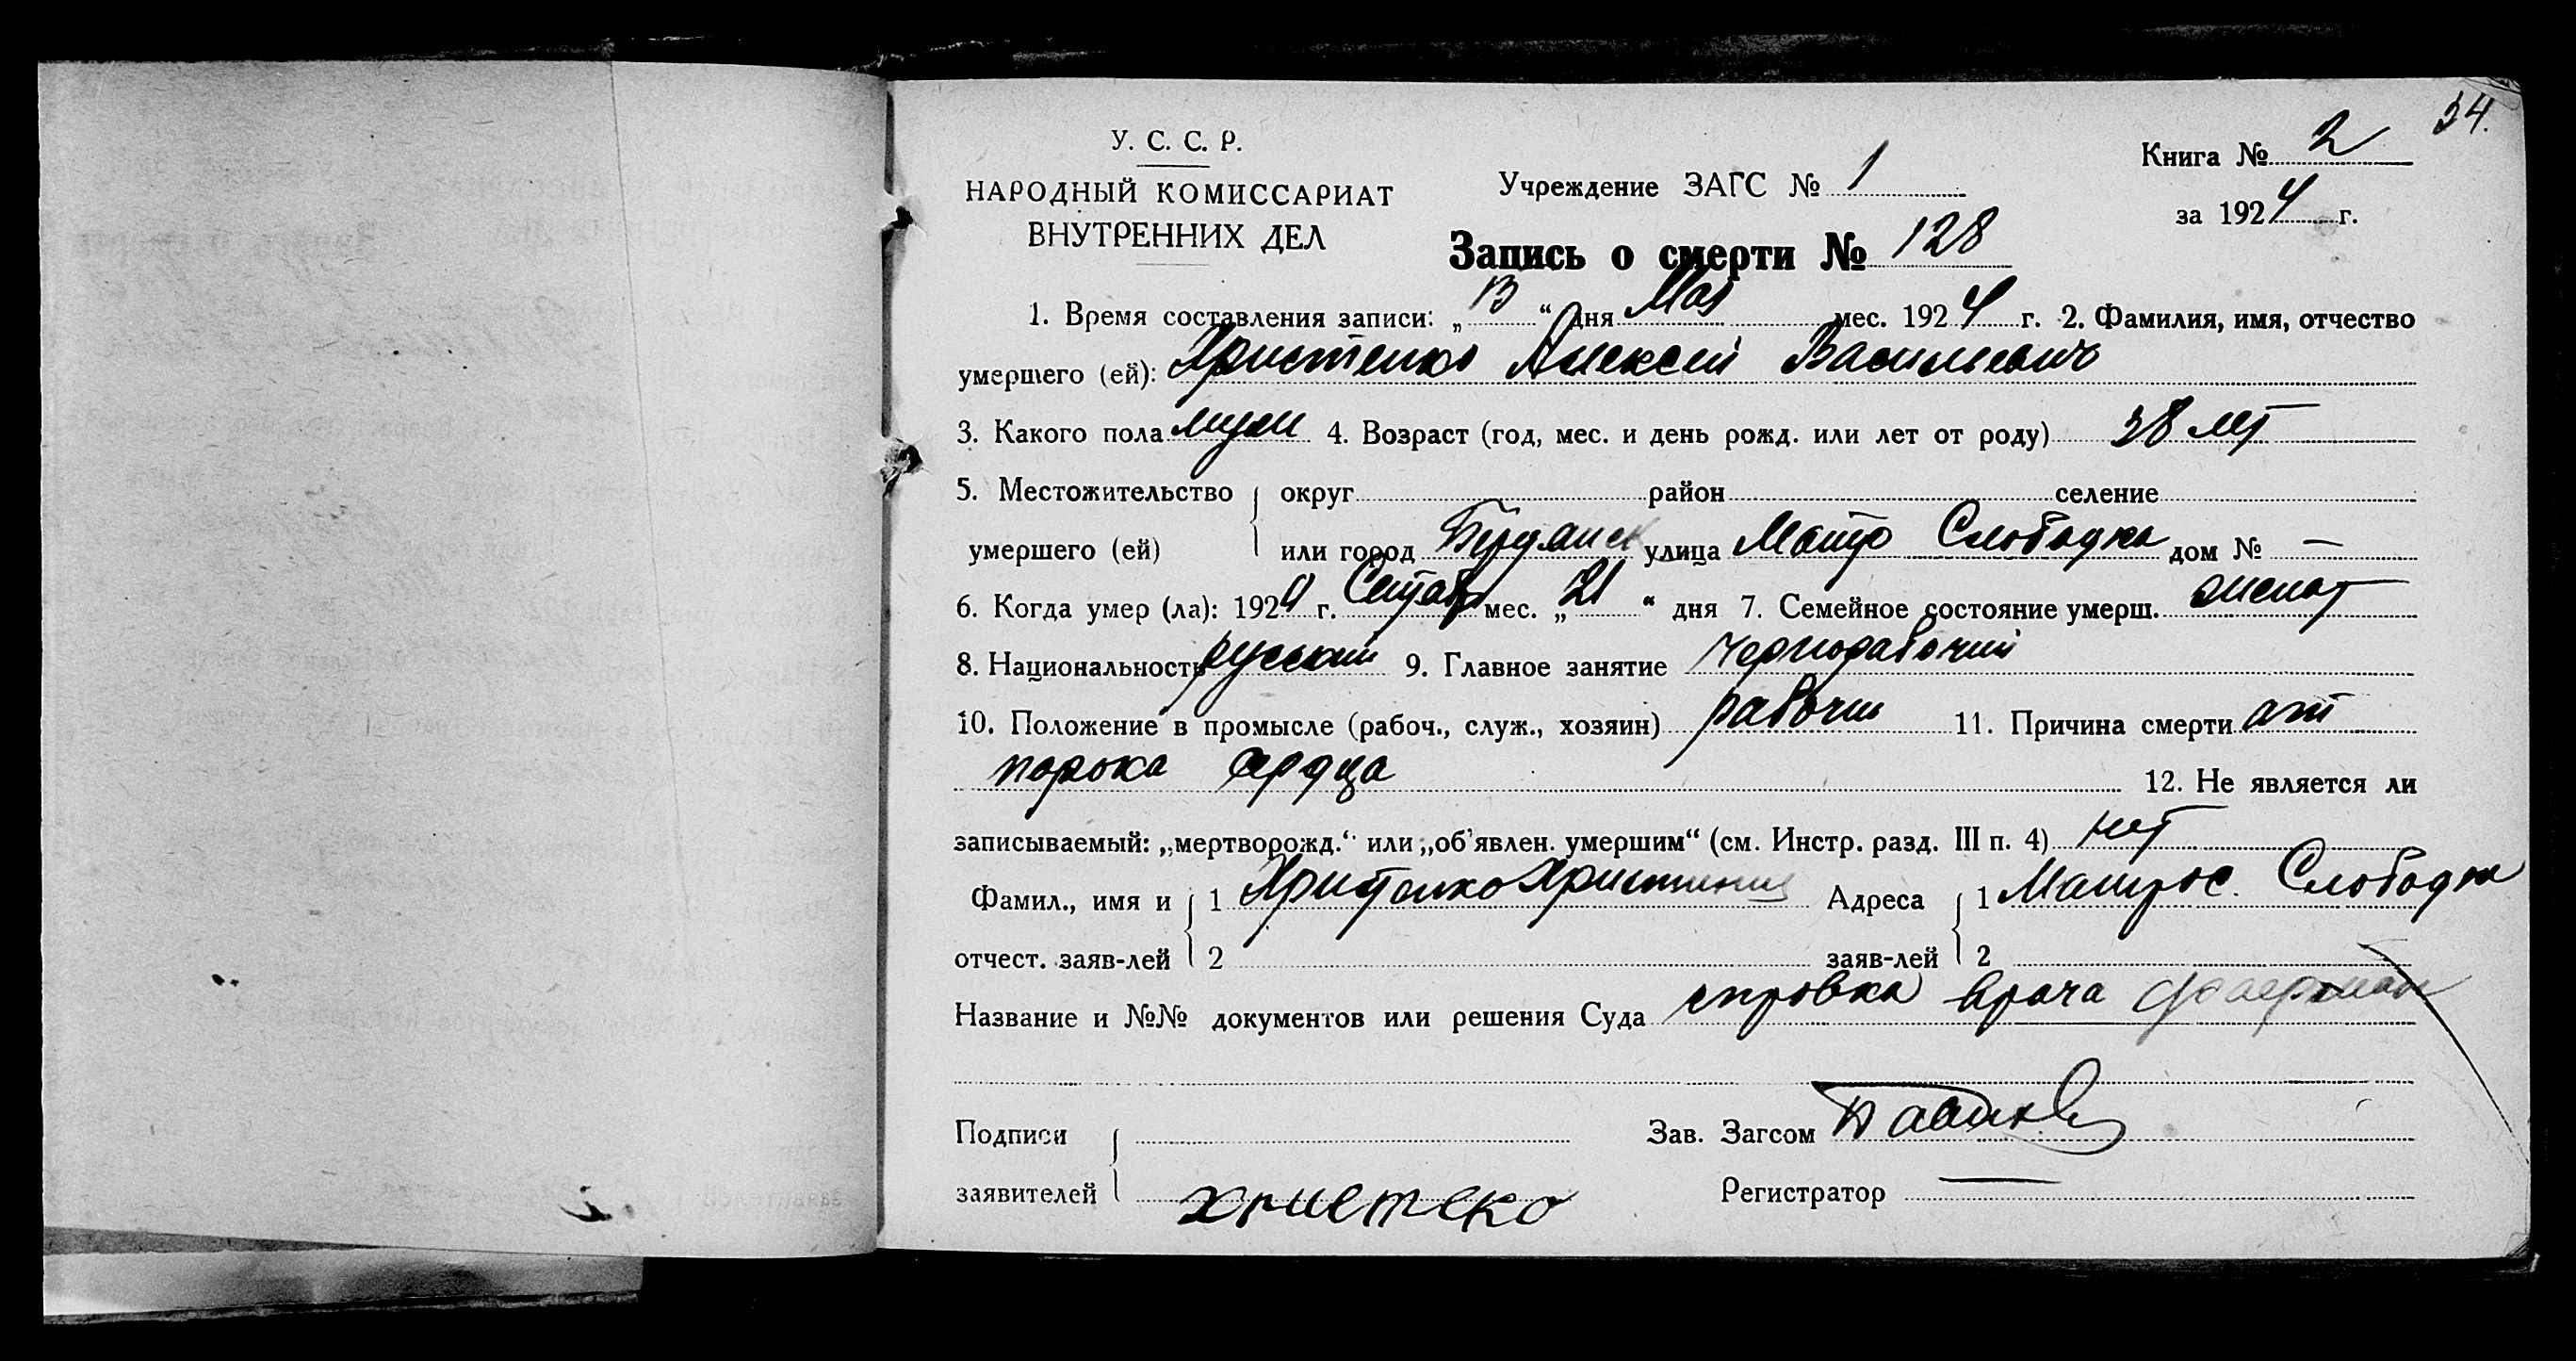 34.
У. С. С. Р.
НАРОДНЫЙ КОМИССАРИАТ
ВНУТРЕННИХ ДЕЛ
Учреждение ЗАГС № 1
Книга № 2
за 1924 г.
Запись о смерти № 128
1. Время составления записи: „13“ дня Мая мес. 1924 г. 2. Фамилия, имя, отчество
умершего (ей): Христенко Алексей Васильевич
3. Какого пола муж 4. Возраст (год, мес. и день рожд. или лет от роду) 38 лет
5. Местожительство округ район селение
умершего (ей) или город Бердянск улица Матро Слободка дом № —
6. Когда умер (ла): 192 г. мес. „21“ дня 7. Семейное состояние умерш. женат
8. Национальность русский 9. Главное занятие Чернорабочий
10. Положение в промысле (рабоч., служ., хозяин) рабочий 11. Причина смерти от
порока сердца 12. Не является ли
записываемый: „мертворожд.“ или „об'явлен. умершим“ (см. Инстр. разд. III п. 4) нет
Фамил., имя и 1 Христенко Христиния Адреса 1 Матрос. Слободка
отчест. заяв-лей 2 заяв-лей 2
Название и №№ документов или решения Суда справка врача
Подписи Зав. Загсом
заявителей христеко Регистратор —